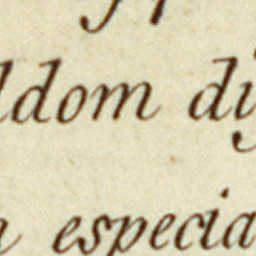 ldom di
especia